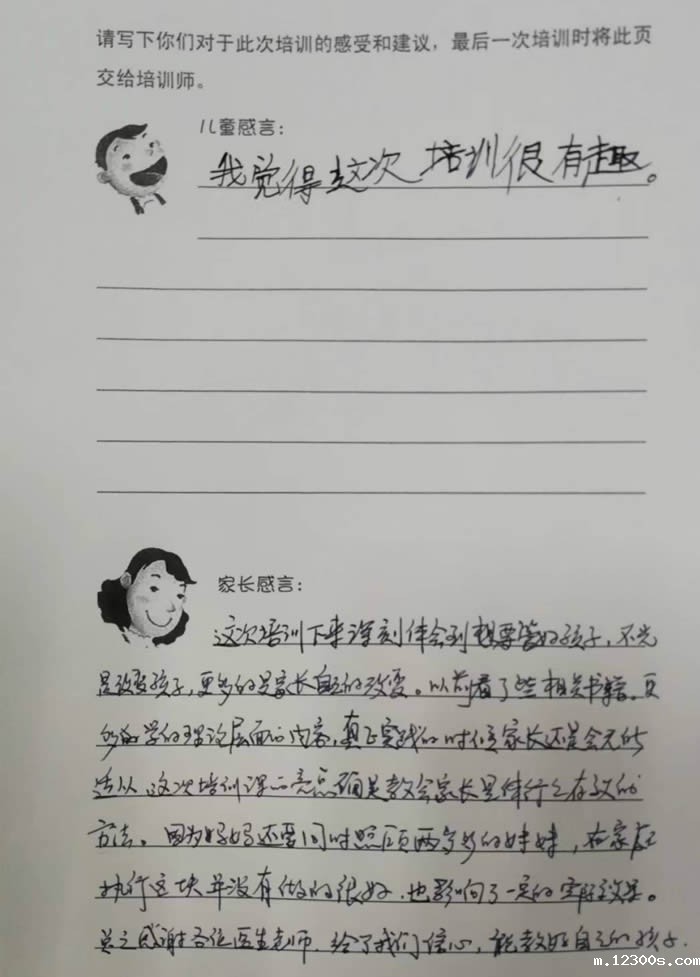 请写下你们对于此次培训的感受和建议，最后一次培训时将此页
交给培训师。
儿童感言：
我觉得这次 培训很有趣。
家长感言：
这次培训下来深刻体会到想要管好孩子，不光
是改变孩子，更多的是家长自己的改变。以前看了些相关书籍，更
多的学的理论层面的内容，真正实践的时候家长还是会无所
适从，这次培训课的亮点确是教会家长具体行之有效的
方法。因为妈妈还要同时照顾两岁多的妹妹，在家庭
执行这块并没有做的很好，也影响了一定的实际效果。
总之感谢各位医生老师，给了我们信心，能教好自己的孩子.
m.12300s.com